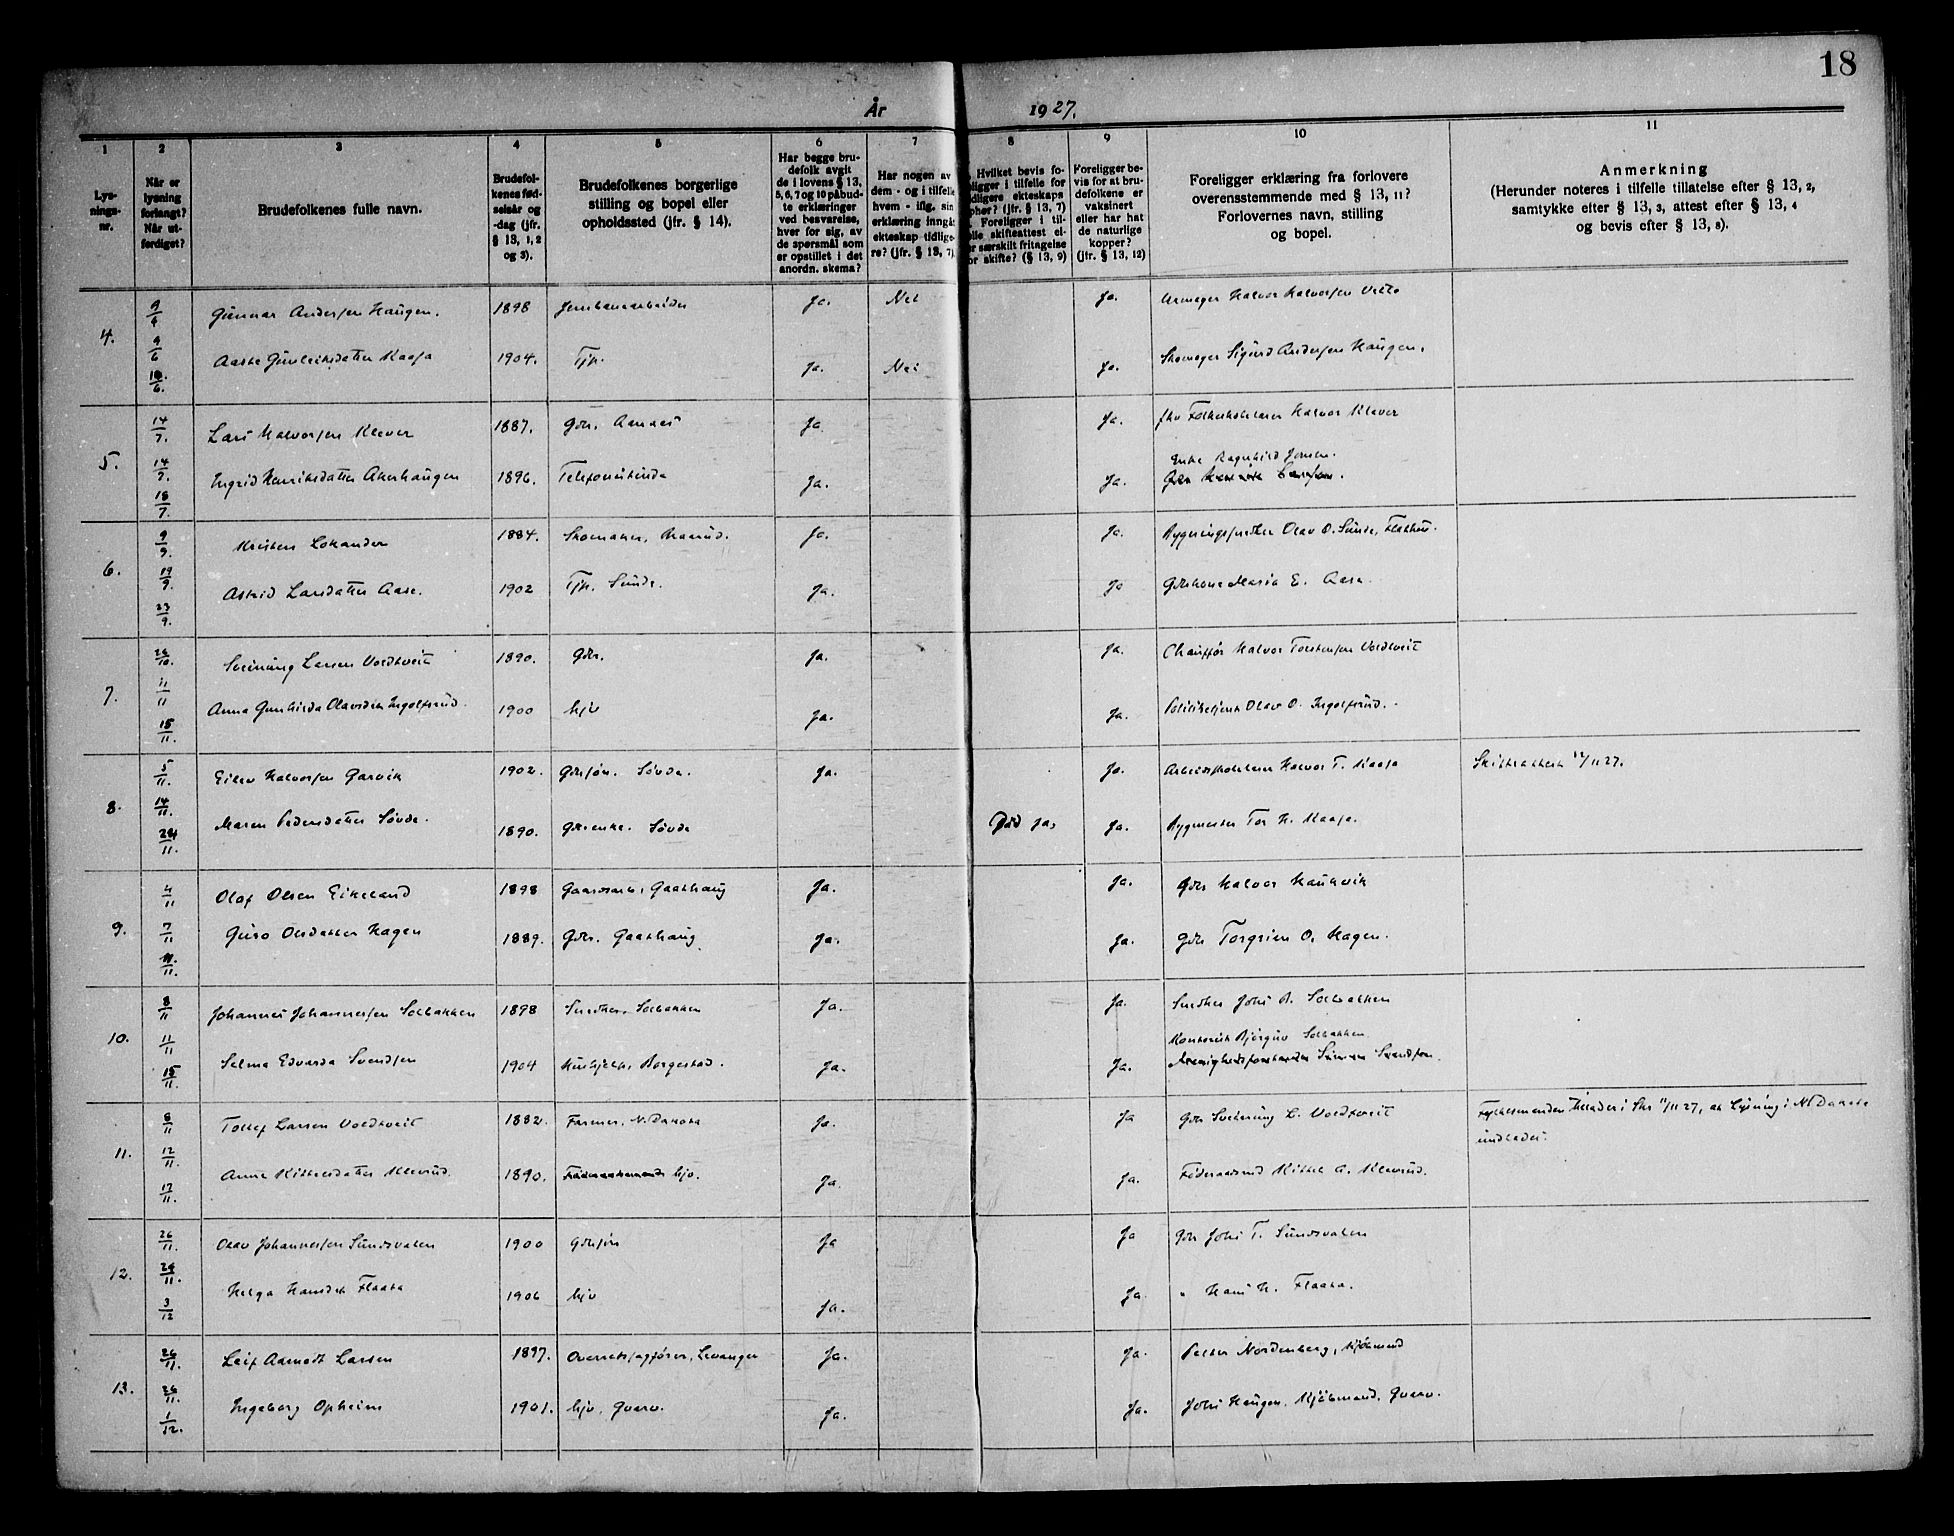 18
År 1927.
1 2 3 4 5 6 7 8 9 10 11
Lysnings-nr.
Når er lysning forlangt? Når utferdiget?
Brudefolkenes fulle navn.
Brudefolkenes fødselsår og -dag (jfr. § 13, 1, 2 og 3).
Brudefolkenes borgerlige stilling og bopel eller opholdssted (jfr. § 14).
Har begge brudefolk avgit de i lovens § 13, 5, 6, 7 og 10 påbudte erklæringer ved besvarelse, hver for sig, av de spørsmål som er opstillet i det anordn. skema?
Har nogen av dem - og i tilfelle hvem - iflg. sin erklæring inngåt ekteskap tidligere? (jfr. § 13, 7)
Hvilket bevis foligger i tilfelle for dligere ekteskaps phør? (jfr. § 13, 7) Foreligger i tilelle skifteattest eler særskilt fritagelse or skifte? (§ 13, 9)
Foreligger bevis for at brudefolkene er vaksinert eller har hat de naturlige kopper? (jfr. § 13, 12)
Foreligger erklæring fra forlovere overensstemmende med § 13, 11? Forlovernes navn, stilling og bopel.
Anmerkning (Herunder noteres i tilfelle tillatelse efter § 13, 2, samtykke efter § 13, 3, attest efter § 13, 4 og bevis efter § 13, 8).
4. 9/6 Gunnar Andersen Haugen. 1898 Jernbanearbeider Ja. Nei Ja. Halvor Halvorsen
9/6 Aaste Gunleiksdatter Kaasa 1904. Tjp. Ja. Nei Ja. Skomager Sigurd Andersen Haugen.
/6.
5. 14/7. Lars Halvorsen Klever 1887. Gbr. Aarnes Ja Ja. Halvor Klever
14/7. Ingrid Henriksdatter Akerhaugen 1896. Telefonistinde Ja. Ja. Enke Ragnhild Jensen.
18/7.
6. 9/9. Kristen Lokander 1884. Skomaker, Ja. Ja. Bygningssnedker Olav O. Sunde, Flatthus.
19/9. Astrid Larsdatter Aase. 1902 Tjp. Sunde. Ja. Ja Gbrkone Maria E. Aase.
23/9.
7. 26/10. Sveinung Larsen Voldtveit 1890. Gbr. Ja. Ja. Chauffør Halvor Torstensen Voldtveit
11/11 Anna Gunhilda Olavsdatter Ingolfsrud. 1900 hjv Ja. Ja. Politibetjent Olav O. Ingolfsrud.
15/11.
8. 5/11. Eilev Halvorsen Garvik 1902. Gbrsøn. Søvde. Ja. Ja. Halvor T. Kaasa Skifteattest 12/11 27.
14/11. Maren Pedersdatter Søvde. 1890. Gbrenke. Søvde Død Ja, Ja. Bygmester Tor H. Kaasa.
24/11.
9. 4/11 Olaf Olsen Eikeland 1898 Gaardsarb., Gaathaug Ja. Ja. Gbr Halvor Haukvik
7/11 Guro Olsdatter Hagen 1889. Gbr. Gaathaug Ja. Ja. Gbr Torgrim O. Hagen.
11/11.
10. 8/11 Johannes Johannessen Solbakken 1898 Snedker. Solbakken Ja. Ja. Snedker Johs B. Solbakken
11/11 Kontorist Bjørgulv Solbakken
Selma Edvarda Svendsen 1904 Hushjelp, Borgestad. Ja. Ja. Menighedsforstander Svendsen.
15/11.
11. 8/11 Tollef Larsen Voldtveit 1882. Farmer. N. Dakota Ja. Ja Gbr Sveinung L. Voldtveit Fylkesmanden tillader i Skr 11/11 27, at lysning i N. Dakota
undlades.
12/11. Anne Kittelsdatter Klevrud. 1890. hjv. Ja. Ja. Føderaadsmd Kittel A. Klevrud.
17/11.
12. 26/11. Olav Johannessen Sundsvalen 1900 Gbrsøn Ja Ja Gbr Johs T. Sundsvalen
29/11. Helga Hansdtr Flaata 1906 hjv Ja. Ja. " Hans H. Flaata.
3/12
13. 26/11. Leif Aamodt Larsen 1897. Overretssagfører, Levanger Ja. Ja. Petter Nordenberg, Kjøbmand
26/11. Ingeborg Opheim 1901. hjv. Gvarv. Ja. Ja. Johs Haugen. Kjøbmand. Gvarv.
1/12.